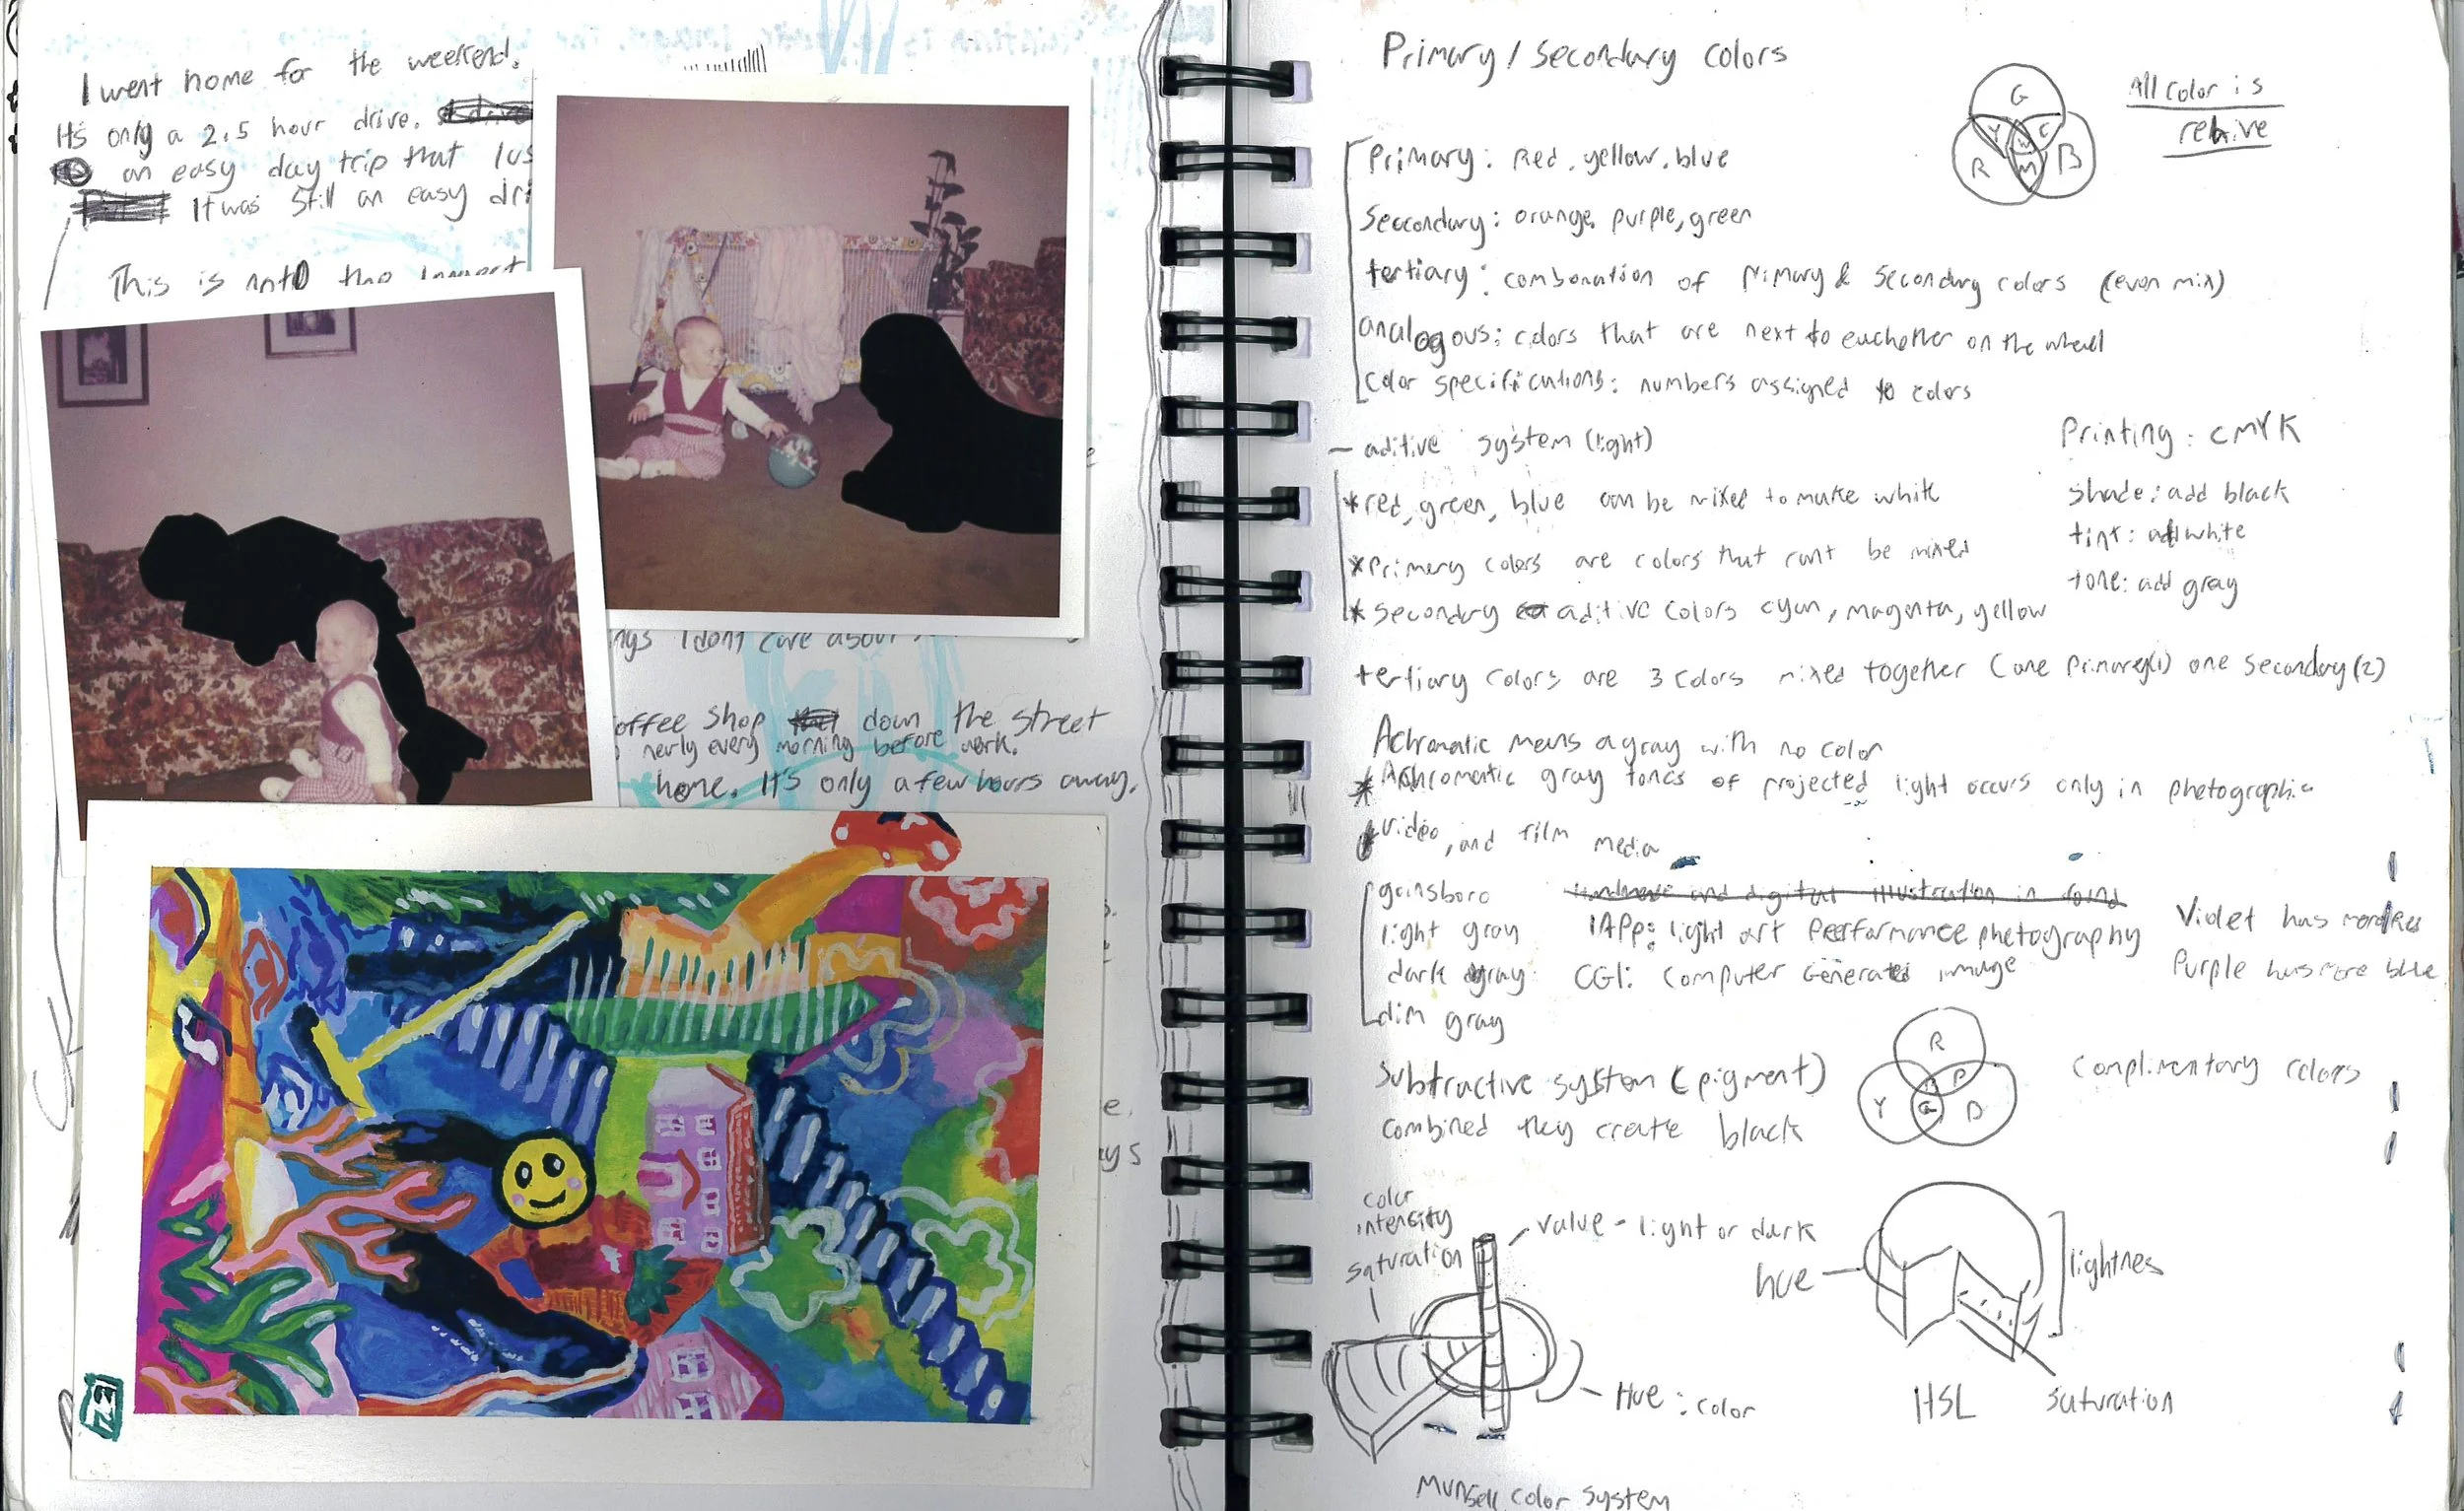 I went home for the weekend.
It's only a 2.5 hour drive.
an easy day trip that
It was still an easy dri
This is not the longest
ngs I dont care about
offee shop down the street
nearly every morning before work.
home. It's only a few hours away.
e.
ays
Primary / Secondary colors
G
Y C
W
R M B
All color is
relative
Primary: Red, yellow, blue
Seccondary: orange, purple, green
tertiary: combonation of Primary & Secondary colors (even mix)
analogous: colors that are next to eachother on the wheel
Color specifications: numbers assigned to colors
- aditive system (light)
* red, green, blue can be mixed to make white
* Primery colors are colors that cant be mixed
* Secondary aditive colors cyan, magenta, yellow
Printing: CMYK
shade: add black
tint: add white
tone: add gray
tertiary colors are 3 colors mixed together (one Primarey(1) one secondary(2)
Achromatic means a gray with no color
* Achromatic gray tones of projected light occurs only in photographic
video, and film media
gainsboro
light gray
dark gray
dim gray
and digital illustration in
lAPp: light art Performance photography
CGI: Computer Generated image
Violet has more Red
Purple has more blue
Subtractive system (pigment)
combined they create black
R
P
Y G B
Complimentary colors
color
intensity
saturation
value - light or dark
Hue: color
Munsell color System
hue
lightnes
HSL
saturation